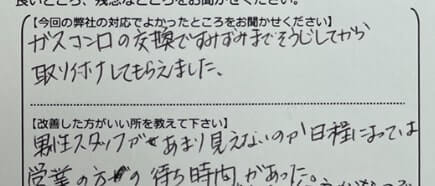 良いところ、残念なところをお聞かせください。
【今回の弊社の対応でよかったところをお聞かせください】
ガスコンロの交換ですみずみまでそうじしてから
取り付けしてもらえました、
【改善した方がいい所を教えて下さい】
男性スタッフが あまり見えないのが日程によっては
営業の方の待ち時間があった。